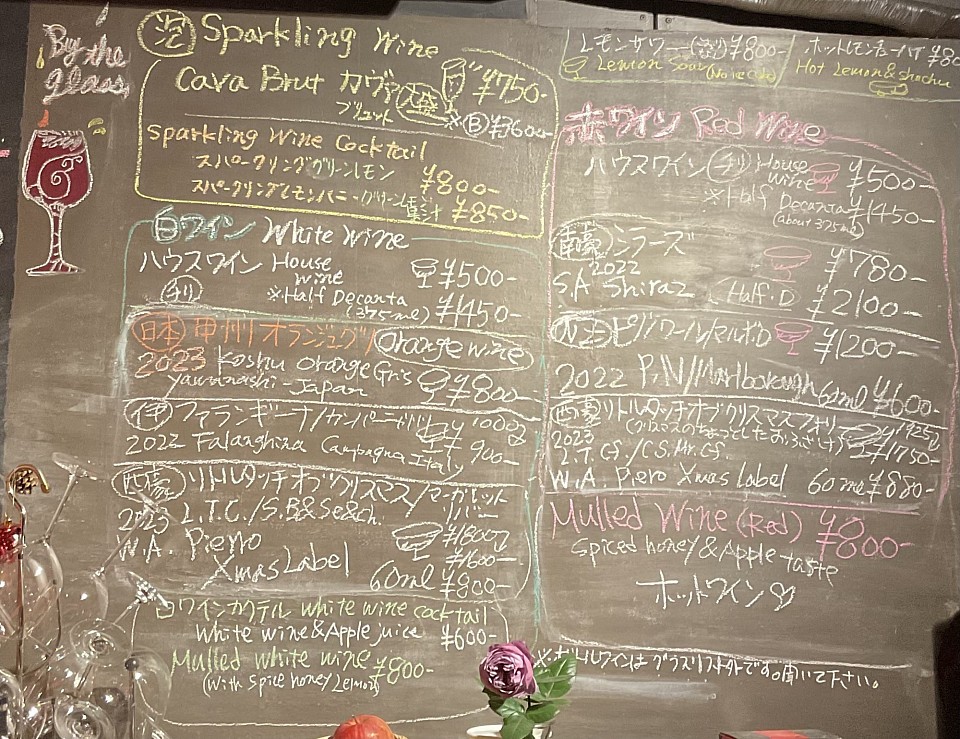 By the
glass
泡 Sparkling Wine
Cava Brut カヴァ 大盛 ¥750-
ブリュット ※Ⓑ¥3600-
Sparkling Wine Cocktail
スパークリンググリーンレモン ¥800-
スパークリングレモンハニーグリーンレモン
果汁 ¥850-
白ワイン White Wine
ハウスワイン House
wine ¥500-
チリ ※Half Decanta ¥1450-
(375ml)
日本 甲州オランジュグリ Orange wine
2023 Koshu Orange Gris ¥800-
Yamanashi-Japan
伊 ファランギーナ/カンパーニャ ¥1000
2022 Falanghina Campagna Italy ¥900-
西豪 リトルタッチオブクリスマス/マーガレット
リバー
2023 L.T.C./S.B&Se&ch.
W.A. Pierro ¥1800
¥1600-
Xmas Label 60ml ¥800-
白ワインカクテル white wine cocktail
White wine & Apple juice ¥600-
Mulled white wine ¥800-
(With spice honey Lemon)
レモンサワー ¥800-
Lemon Sour (No ice)
ホットレモン
Hot Lemon & shochu
赤ワイン Red Wine
ハウスワイン チリ House
wine ¥500-
※Half Decanta ¥1450-
(about 375ml)
南豪 シラーズ ¥780-
2022
S.A Shiraz Half.D ¥2100-
N.Z ピノノワール/マルボロ ¥1200-
2022 P.N/Marlborough 60ml ¥600-
西豪 リトルタッチオブクリスマス ¥1925
(クリスマスのちょっとしたおふざけ) ¥1750-
2023
L.T.CS./C.S.Mr.CS.
W.A. Piero Xmas Label 60ml ¥880-
Mulled Wine (Red) ¥800-
Spiced honey & Apple taste
ホットワイン♡
※ボトルワインはグラスリスト外です。お聞いて下さい。